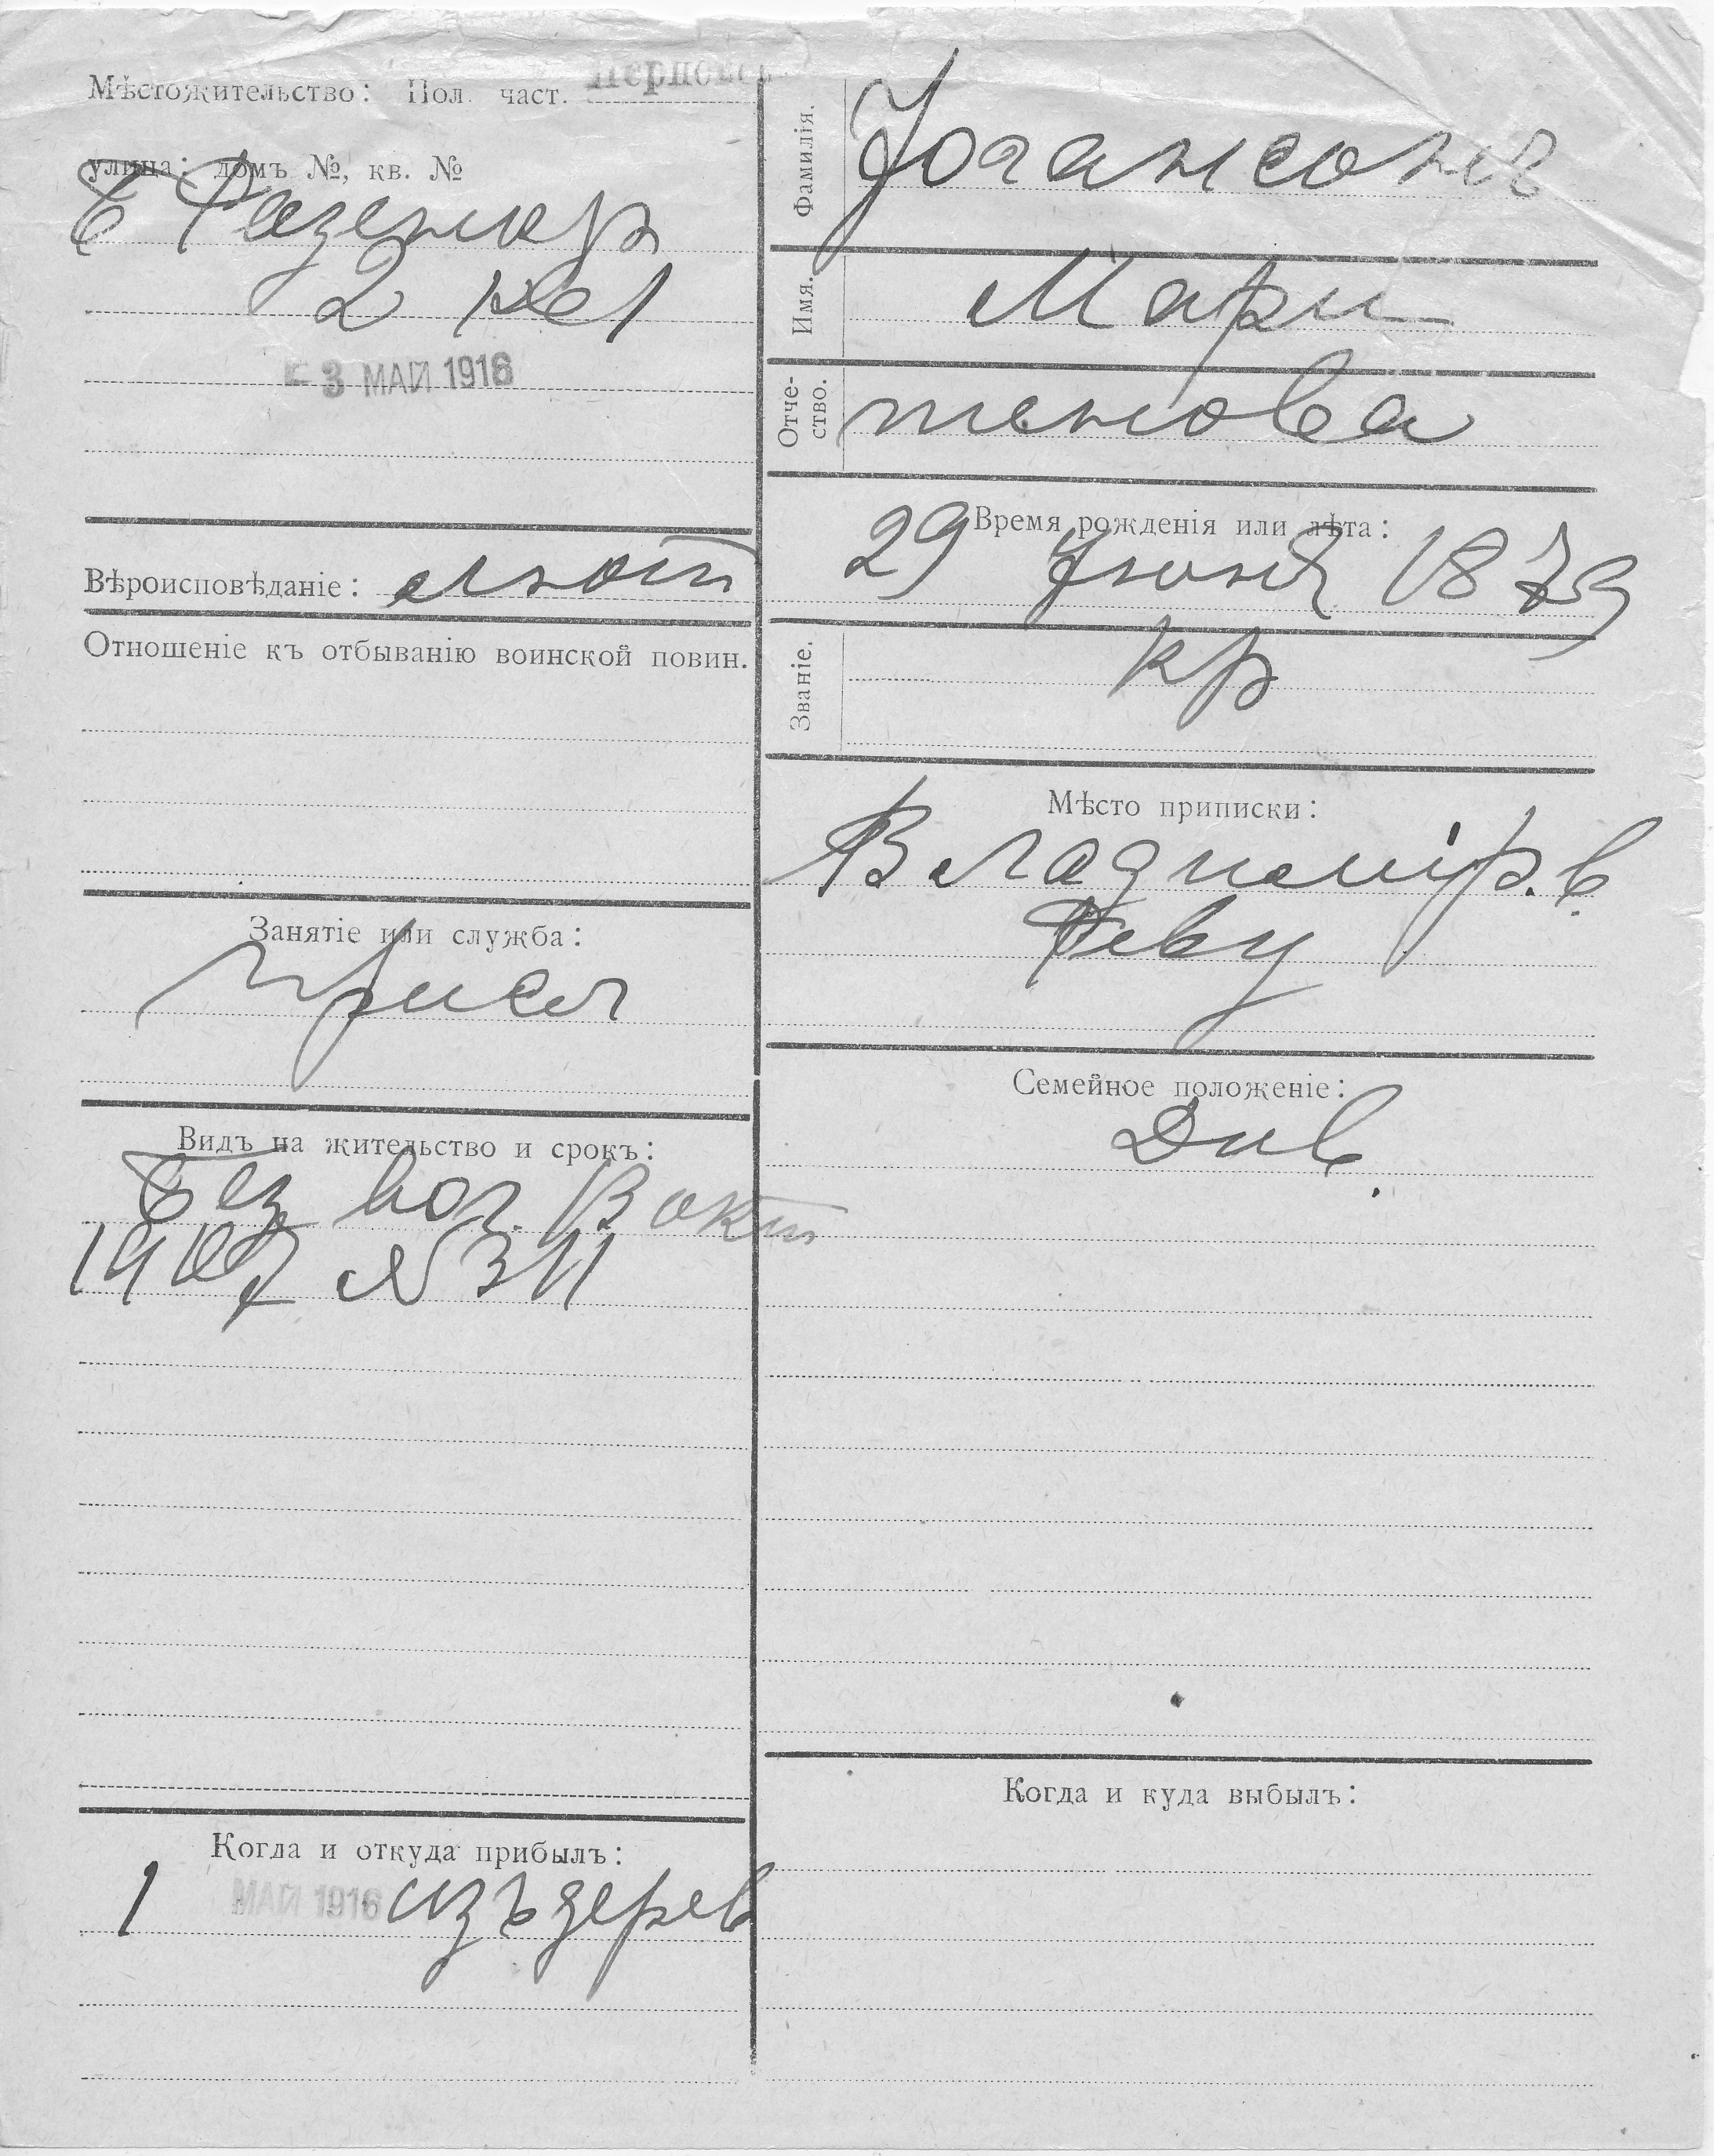 Мѣстожительство: Пол. част. Перновск
улица: домъ №, кв. №
Б Розенкр
2 кв 1
3 МАЙ 1916
Вѣроисповѣданіе: лют
Отношеніе къ отбыванію воинской повин.
Занятіе или служба:
присл
Видъ на жительство и срокъ:
Без вол. В окт
1907 № 311
Когда и откуда прибылъ:
1 МАЙ 1916 изъ дерев
Фамилія. Іогансонъ
Имя. Мари
Отче-
ство. тенова
Время рожденія или лѣта:
29 Іюня 1879
Званіе. кр
Мѣсто приписки:
Владимір. в.
Рев у
Семейное положеніе:
Дѣв.
Когда и куда выбылъ: